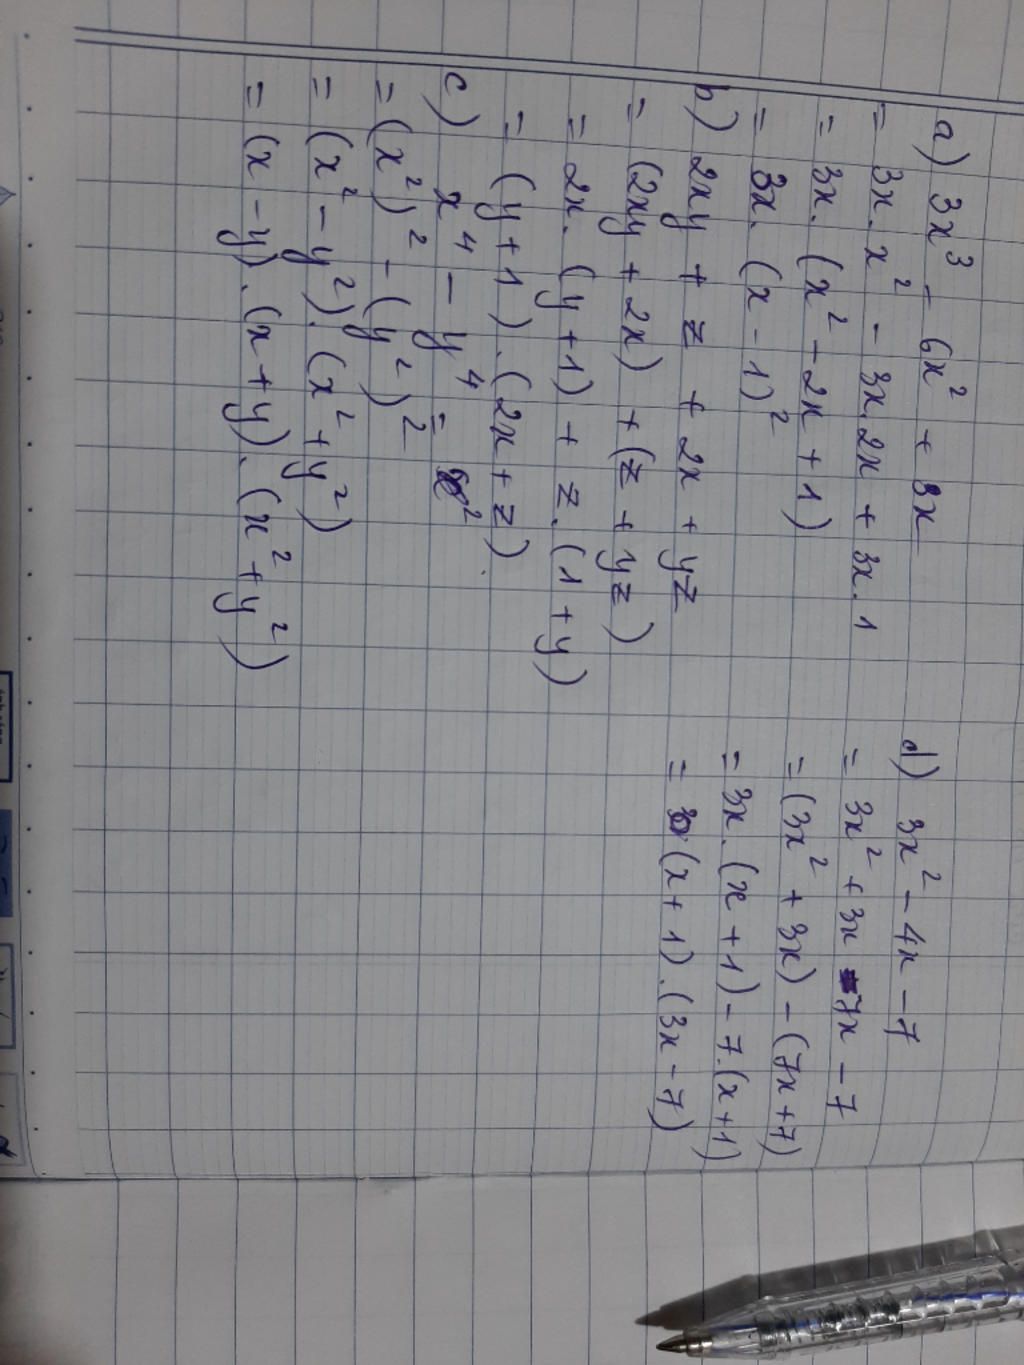 a) 3x³ - 6x² + 3x
= 3x. x² - 3x. 2x + 3x. 1
= 3x. (x² - 2x + 1)
= 3x. (x - 1)²
b) 2xy + z + 2x + yz
= (2xy + 2x) + (z + yz)
= 2x. (y + 1) + z. (1 + y)
= (y + 1). (2x + z).
c) x⁴ - y⁴ =
= (x²)² - (y²)²
= (x² - y²). (x² + y²)
= (x - y). (x + y). (x² + y²)
d) 3x² - 4x - 7
= 3x² + 3x - 7x - 7
= (3x² + 3x) - (7x + 7)
= 3x. (x + 1) - 7. (x + 1)
= (x + 1). (3x - 7)